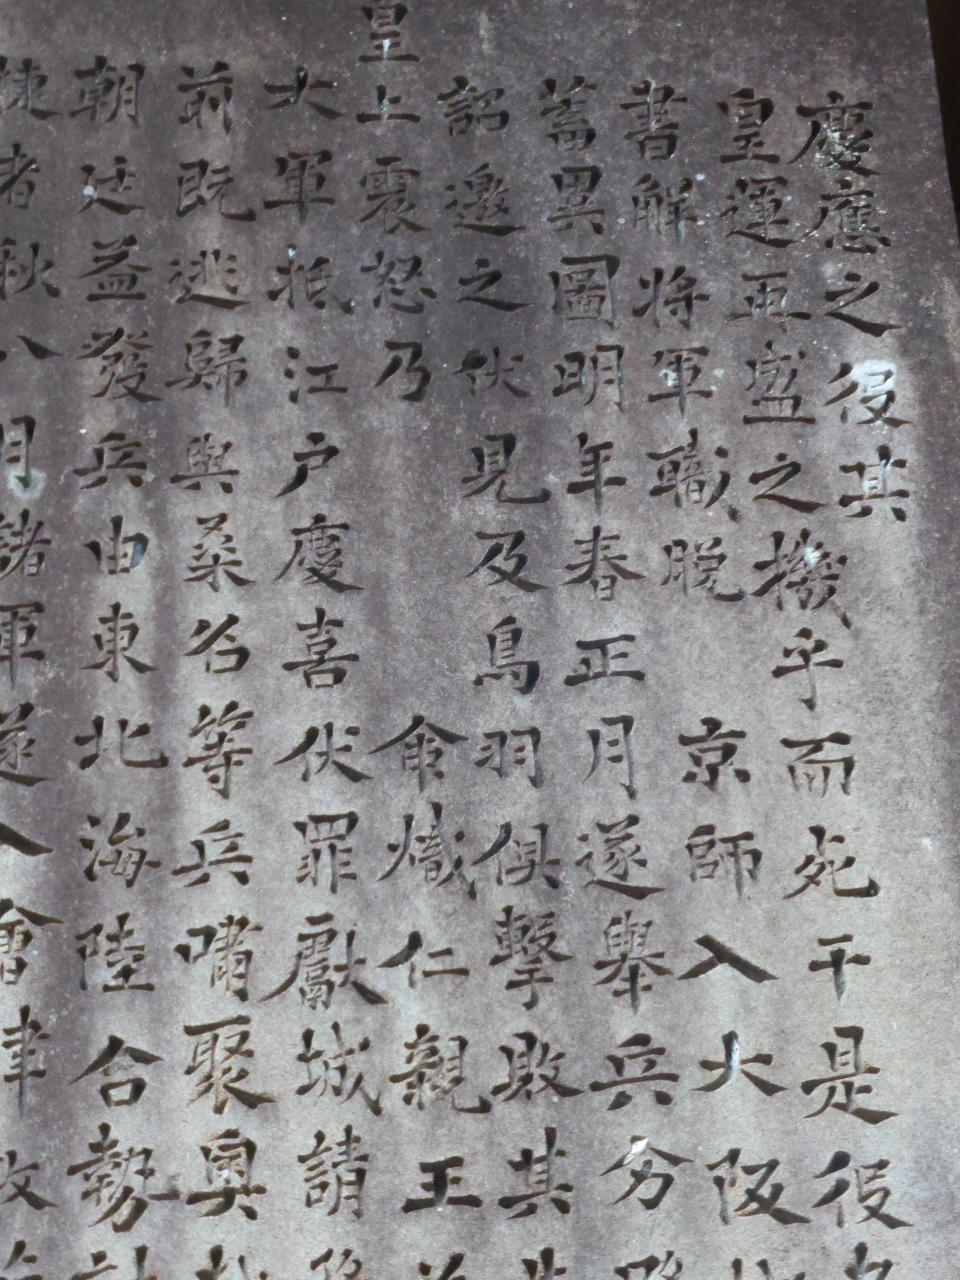 慶應之役其
皇運再盛之機乎而死干是役
書解將軍職脫京師入大阪
蓄異圖明年春正月遂舉兵分
詔邀之伏見及鳥羽俱擊敗其
皇上震怒乃命熾仁親王
大軍抵江戶慶喜伏罪獻城請
前既逃歸與桑名等兵嘯聚奧
朝廷益發兵由東北海陸合勢
者秋八月諸軍遂入會津